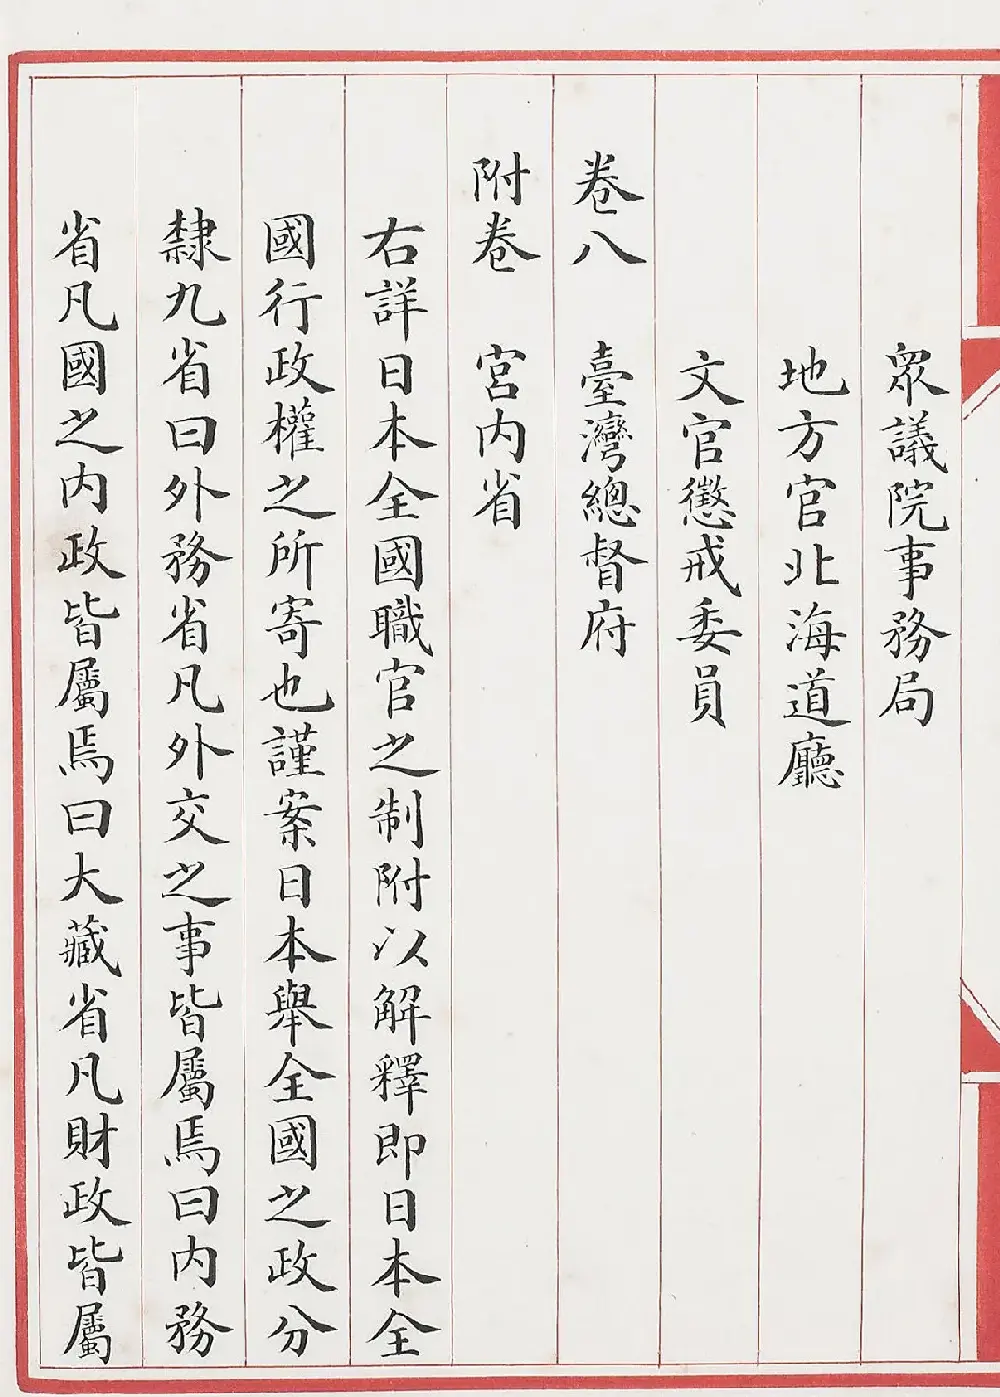 眾議院事務局
地方官北海道廳
文官懲戒委員
卷八　臺灣總督府
附卷　宮内省
右詳日本全國職官之制附以解釋即日本全
國行政權之所寄也謹案日本舉全國之政分
隸九省曰外務省凡外交之事皆屬焉曰内務
省凡國之内政皆屬焉曰大藏省凡財政皆屬